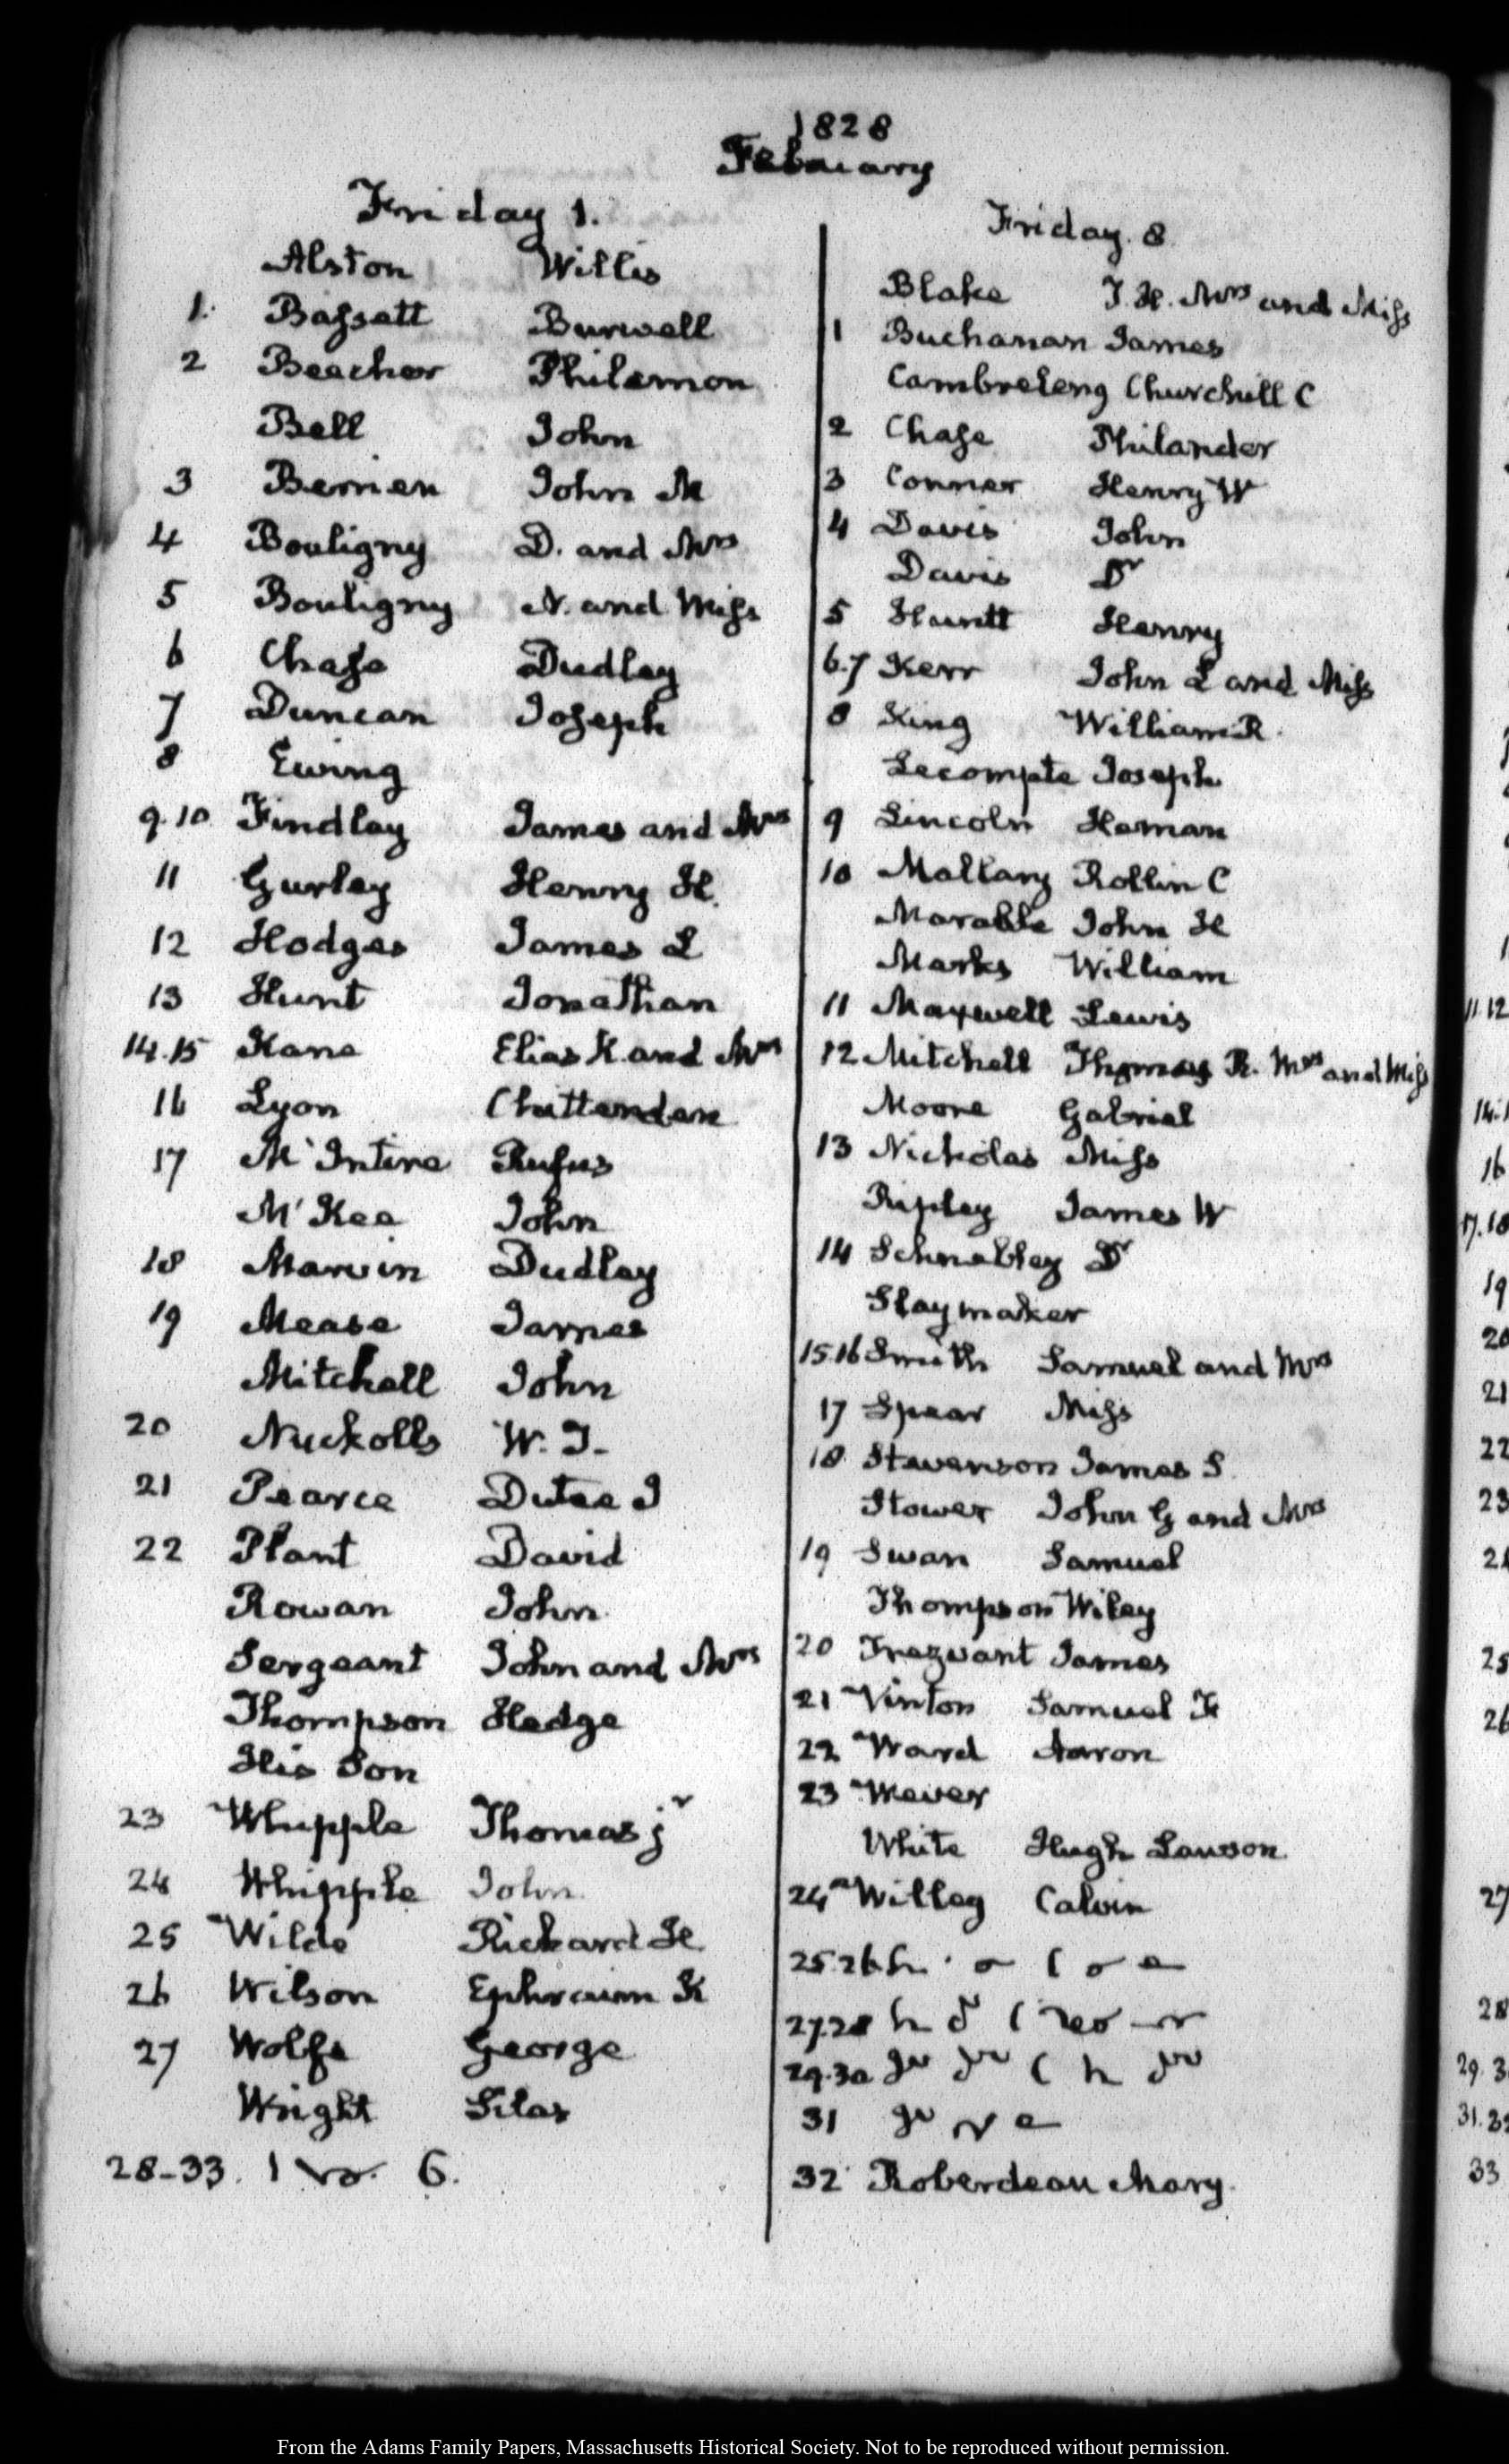 1828
February
Friday 1.
Alston Willis
1. Bassett Burwell
2 Beecher Philemon
Bell John
3 Berrien John M
4 Bouligny D. and Mrs
5 Bouligny N. and Miss
6 Chase Dudley
7 Duncan Joseph
8 Ewing
9.10 Findlay James and Mrs
11 Gurley Henry H.
12 Hodges James L
13 Hunt Jonathan
14.15 Kane Elias K. and Mrs
16 Lyon Chittenden
17 McIntire Rufus
McKee John
18 Marvin Dudley
19 Mease James
Mitchell John
20 Nuckolls W. T.
21 Pearce Dutee J
22 Plant David
Rowan John
Sergeant John and Mrs
Thompson Hedge
His Son
23 Whipple Thomas jr
24 Whipple John
25 Wilde Richard H.
26 Wilson Ephraim K
27 Wolfe George
Wright Silas
28-33. 6.
Friday. 8
Blake T. H. Mrs and Miss
1 Buchanan James
Cambreleng Churchill C
2 Chase Philander
3 Conner Henry W
4 Davis John
Davis Dr
5 Henry
6.7 Kerr John L and Miss
8 King William R.
Lecompte Joseph
9 Lincoln Heman
10 Mallary Rollin C
Marable John H
Marks William
11 Maxwell Lewis
12 Mitchell Thomas R. Mrs and Miss
Moore Gabriel
13 Nicholas Miss
Ripley James W
14 Schnebley Dr
Slaymaker
15.16 Smith Samuel and Mrs
17 Spear Miss
18 Stevenson James S
Stower John G and Mrs
19 Swan Samuel
Thompson Wiley
20 Trezvant James
21 Vinton Samuel F
22 Ward Aaron
23 Wever
White Hugh Lawson
24 Willey Calvin
25.26
27.28
29.30
31
32 Roberdeau Mary.
From the Adams Family Papers, Massachusetts Historical Society. Not to be reproduced without permission.